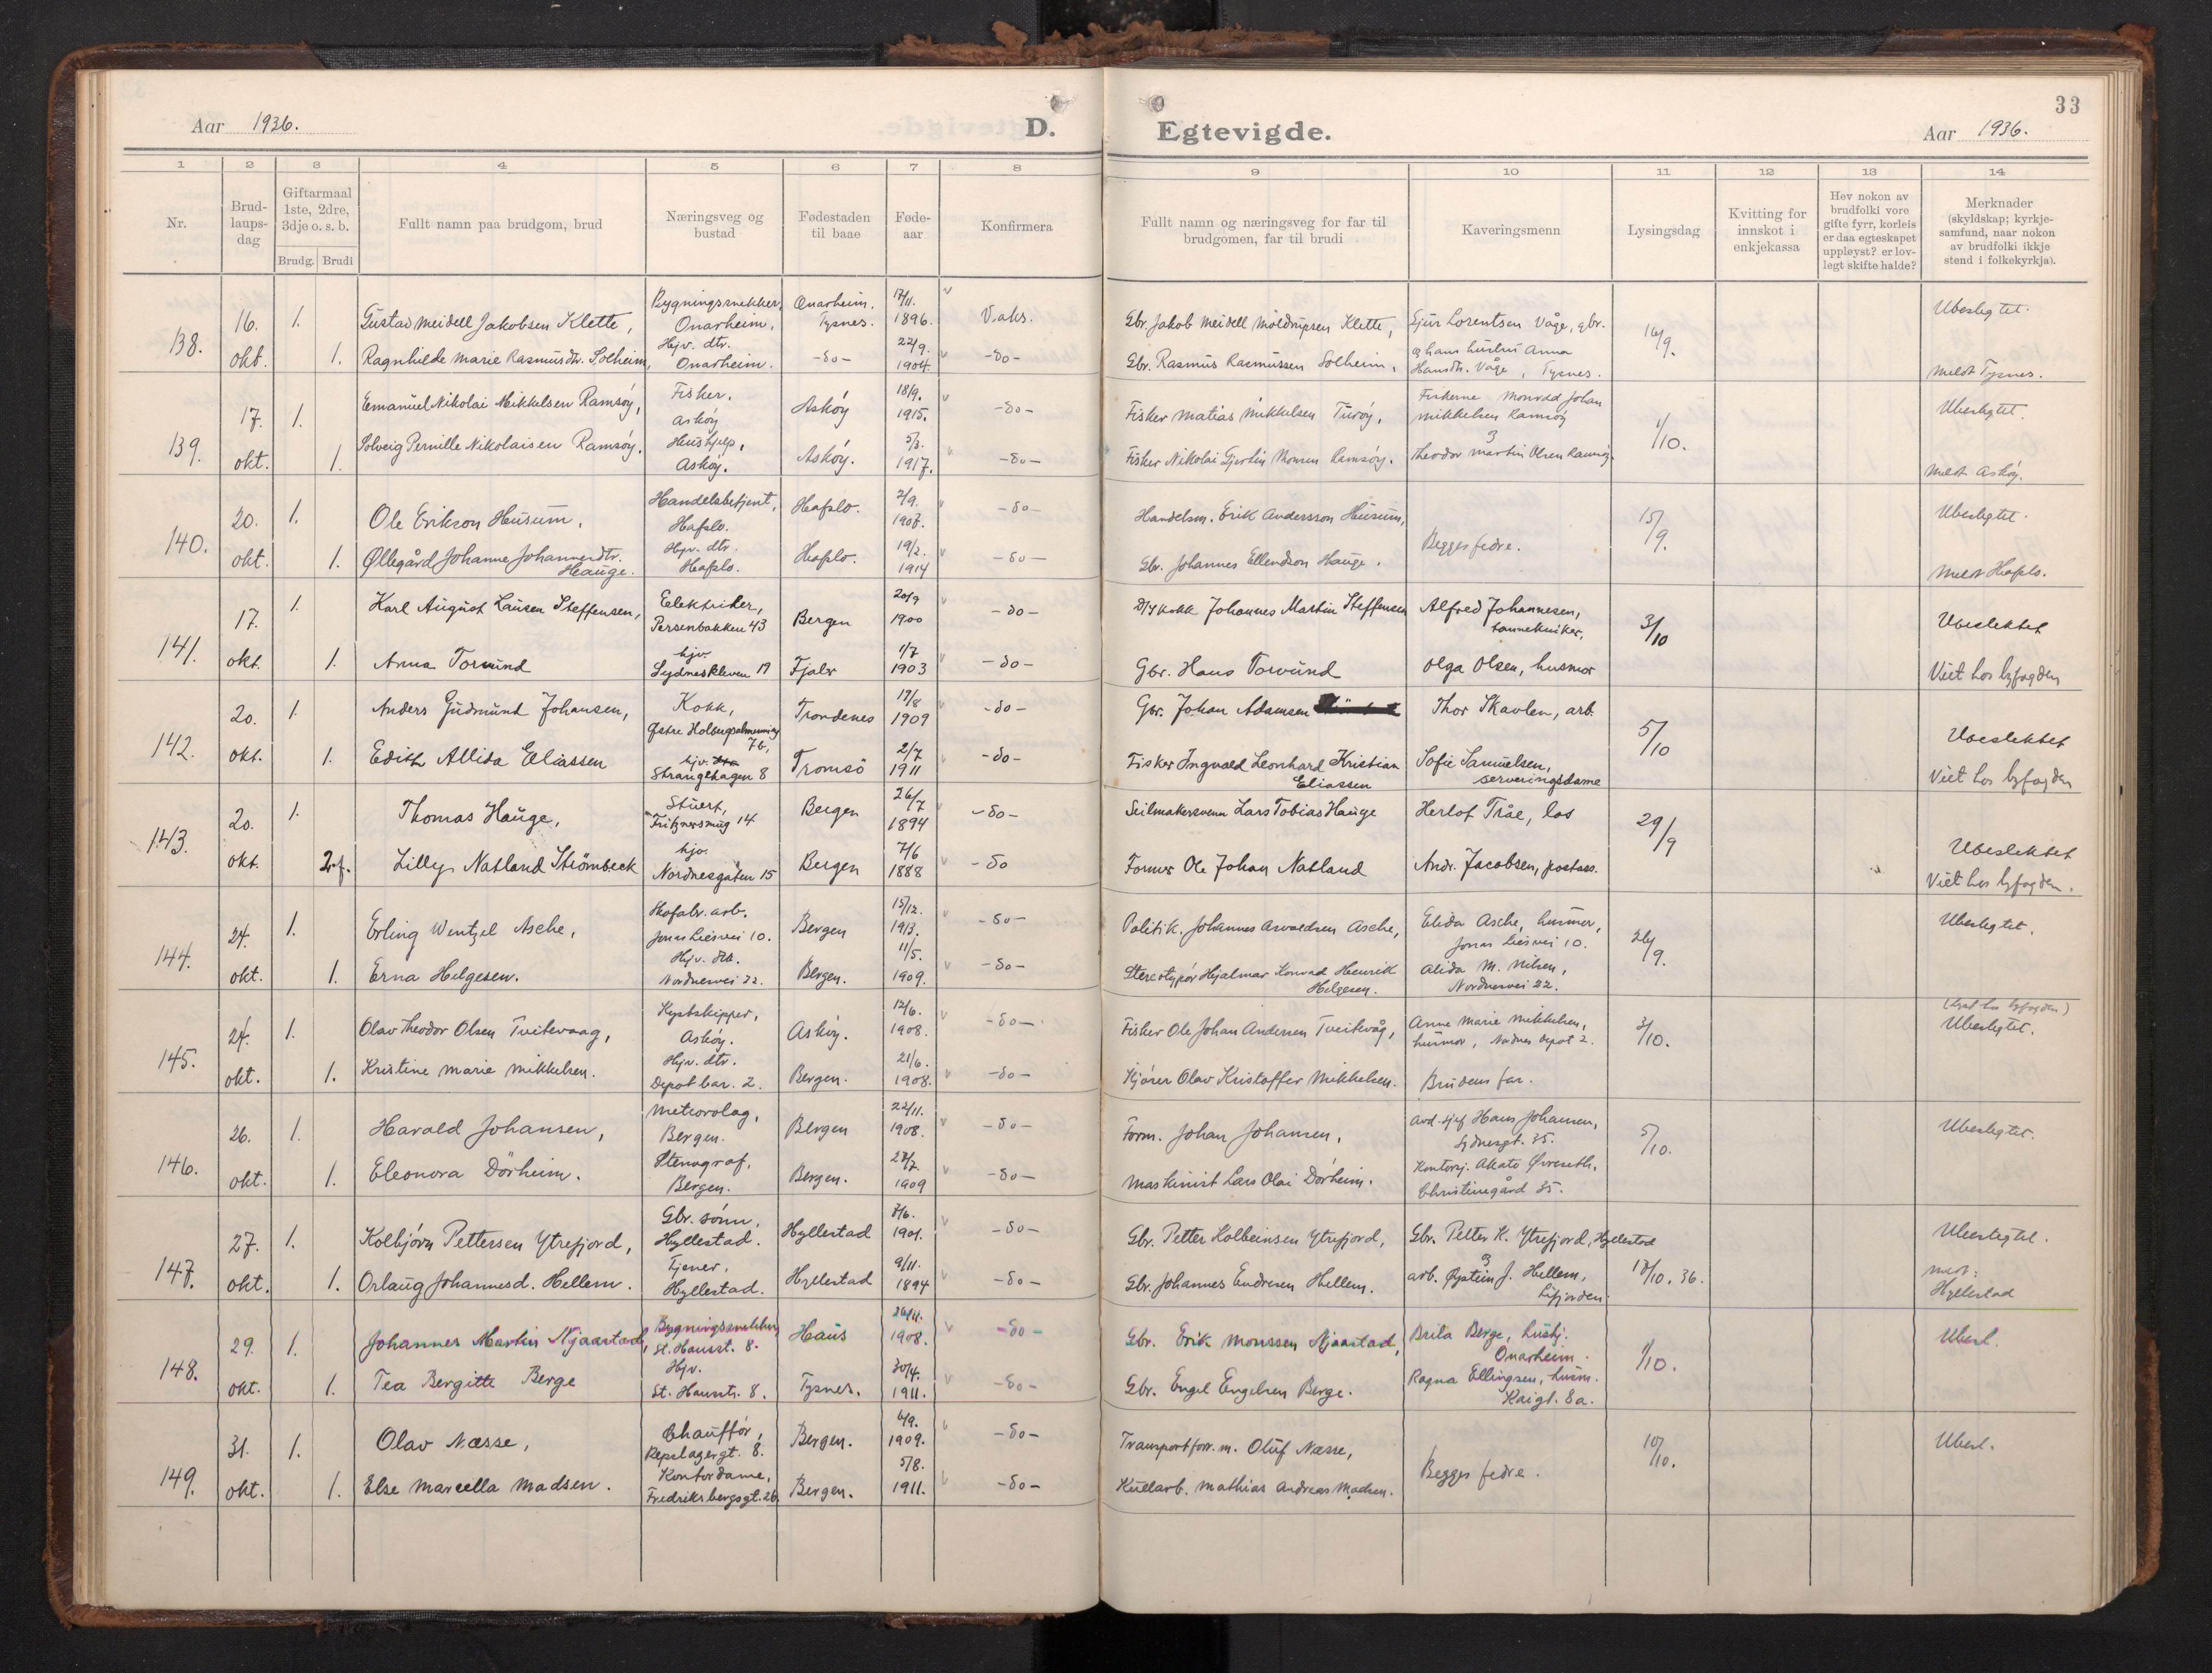 Aar 1936.
D.
Egtevigde.
33
Aar 1936.
1 2 3 4 5 6 7 8
9 10 11 12 13 14
Nr.
Brud-
laups-
dag
Giftarmaal
1ste, 2dre,
3dje o. s. b.
Brudg. Brudi
Fullt namn paa brudgom, brud
Næringsveg og
bustad
Fødestaden
til baae
Føde-
aar
Konfirmera
Fullt namn og næringsveg for far til
brudgomen, far til brudi
Kaveringsmenn
Lysingsdag
Kvitting for
innskot i
enkjekassa
Hev nokon av
brudfolki vore
gifte fyrr, korleis
er daa egteskapet
uppløyst? er lov-
legt skifte halde?
Merknader
(skyldskap; kyrkje-
samfund, naar nokon
av brudfolki ikkje
stend i folkekyrkja).
138.
16. okt.
1. Gustav Meidell Jakobsen Klette,
Bygningssnekker,
Onarheim.
Onarheim.
Tysnes.
17/11.
1896.
V.aks.
Gbr. Jakob Meidell Moldrupsen Klette,
Sjur Lorentsen Våge, gbr.
og hans hustru Anna
Hansdtr. Våge, Tysnes.
16/9.
Ubeslegtet.
1. Ragnhilde Marie Rasmusdtr. Solheim,
Hjv. dtr.
Onarheim.
-do-
22/9.
1904.
-do-
Gbr. Rasmus Rasmussen Solheim.
Meldt Tysnes.
139.
17. okt.
1. Emanuel Nikolai Mikkelsen Ramsöy,
Fisker.
Asköy
Asköy
18/9.
1915.
-do-
Fisker Matias Mikkelsen Turöy.
Fiskerne Monrad Johan
Mikkelsen Ramsöy
og
Theodor Martin Olsen Ramsöy.
1/10.
Ubeslegtet.
1. Solveig Pernille Nikolaisen Ramsöy.
Hushjelp,
Asköy.
Asköy.
5/3.
1917.
-do-
Fisker Nikolai Gjertin Monsen Ramsöy.
Meldt Asköy.
140.
20. okt.
1. Ole Erikson Husum.
Handelsbetjent,
Hafslo.
Hafslo.
2/9.
1908.
-do-
Handelsm. Erik Andersson Husum,
Begges fedre.
15/9.
Ubeslegtet.
1. Øllegård Johanne Johannesdtr.
Hauge.
Hjv. dtr.
Hafslo.
Hafslo.
19/2.
1914
-do-
Gbr. Johannes Ellendson Hauge.
Meldt Hafslo.
141.
17. okt.
1. Karl August Lausen Steffensen,
Eelektriker,
Persenbakken 43
Bergen
20/9
1900
-do-
D/S kokk Johannes Martin Steffensen
Alfred Johannesen,
tanntekniker.
3/10
Ubeslektet
1. Anna Torvund
hjv.
Sydneskleven 17
Fjaler
1/7
1903
-do-
Gbr. Hans Torvund
Olga Olsen, husmor
Viet hos byfogden
142.
20. okt.
1. Anders Gudmund Johansen,
Kokk,
Østre Holbergsalmenning
7b,
Trondenes
17/8
1909
-do-
Gbr. Johan Adamsen
Thor Skavlen, arb.
5/10
Ubeslektet
1. Edith Allida Eliassen
hjv.
Strangehagen 8
Tromsö
2/7
1911
-do-
Fisker Ingvald Leonhard Kristian
Eliassen
Sofie Samuelsen,
serveringsdame
Viet hos byfogden
143.
20. okt.
1. Thomas Hauge,
Stuert,
Fritznersmug 14
Bergen
26/7
1894
-do-
Seilmakersvenn Lars Tobias Hauge
Herlof Tråe, los
29/9
Ubeslektet
2. f. Lilly Natland Strömbeck
hjv.
Nordnesgaten 15
Bergen
7/6
1888
-do
Former Ole Johan Natland
Andr. Jacobsen, postass.
Viet hos byfogden.
144.
24. okt.
1. Erling Wentzel Asche,
Skofabr. arb.
Jonas Liesvei 10.
Bergen
15/12.
1913.
-do-
Politik. Johannes Arvoldsen Asche,
Elida Asche, husmor,
Jonas Liesvei 10.
26/9.
Ubeslegtet.
1. Erna Helgesen.
Hjv. dtr.
Nordnesvei 22.
Bergen.
11/5.
1909.
-do-
Stereotypör Hjalmar Konrad Henrik
Helgesen.
Alida M. Nilsen,
Nordnesvei 22.
145.
24. okt.
1. Olav Theodor Olsen Tveitevaag,
Kystskipper,
Asköy.
Asköy.
12/6.
1908.
-do-
Fisker Ole Johan Andersen Tveitevåg,
Anne Marie Mikkelsen,
husmor, Nordnes Depot 2.
3/10.
Ubeslegtet.
1. Kristine Marie Mikkelsen.
Hjv. dtr.
Depot bar. 2.
Bergen.
21/6.
1908.
-do-
Kjörer Olav Kristoffer Mikkelsen.
Brudens far.
146.
26. okt.
1. Harald Johansen,
Meteorolog,
Bergen.
Bergen
22/11.
1908.
-do-
Form. Johan Johansen,
Avd. sjef Hans Johansen,
Sydnesgt. 35.
5/10.
Ubeslegtet.
1. Eleonora Dörheim.
Stenograf.
Bergen.
Bergen.
27/7.
1909
-do-
Maskinist Lars Olai Dörheim.
Christinegård 35.
147.
27. okt.
1. Kolbjörn Pettersen Ytrefjord,
Gbr. sönn,
Hyllestad.
Hyllestad
7/6.
1901.
-do-
Gbr. Petter Kolbeinsen Ytrefjord,
Gbr. Petter K. Ytrefjord, Hyllestad
og
arb. Øystein J. Hellem,
Lifjorden.
17/10. 36.
Ubeslegtet.
1. Orlaug Johannesd. Hellem.
Tjener,
Hyllestad.
Hyllestad
9/11.
1894
-do-
Gbr. Johannes Endresen Hellem.
Meldt:
Hyllestad
148.
29. okt.
1. Johannes Martin Njaastad,
Bygningssnekker,
St. Hansst. 8.
Haus
26/11.
1908.
-do-
Gbr. Erik Monssen Njaastad,
Brita Berge, hushj.
Onarheim.
1/10.
Ubesl.
1. Tea Bergitte Berge
Hjv.
St. Hansst. 8.
Tysnes.
30/4.
1911.
-do-
Gbr. Engel Engelsen Berge.
Ragna Ellingsen, husm.
Kaigt. 8a.
149.
31. okt.
1. Olav Næsse,
Chauffør,
Repslagergt. 8.
Bergen.
6/9.
1909.
-do-
Transportforr.m. Oluf Næsse,
Begges fedre.
10/10.
Ubesl.
1. Else Marcella Madsen.
Kontordame,
Fredriksbergsgt. 26.
Bergen.
5/8.
1911.
-do-
Kullarb. Mathias Andreas Madsen.